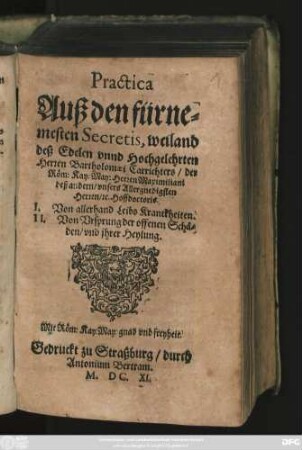 Practica
Auß den fürne-
mesten Secretis, weiland
deß Edelen vnnd Hochgelehrten
Herren Bartholomæi Carrichters / der
Röm: Kay: May: Herren Maximiliani
deß andern / vnsers Allergnedigsten
Herren / ꝛc. Hoffdoctoris.
I. Von allerhand Leibs Kranckheiten.
II. Von Vrsprung der offenen Schä-
den / vnd jhrer Heylung.
Mit Röm: Kay: May: gnad vnd freyheit.
Gedruckt zu Straßburg / durch
Antonium Bertram.
M. DC. XI.